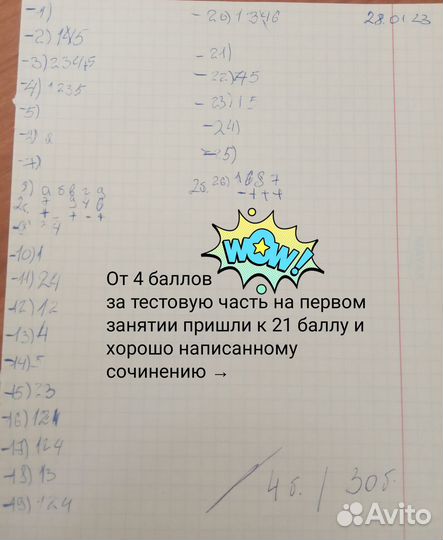 -1)
-2) 145
-3) 2345
-4) 1235
-5)
-7)
8) а б в г д
-10) 1
-11) 24
-12) 12
-13) 4
-14)
-15) 23
-16) 124
-17) 124
-18) 13
-19) 124
-20) 1346
28.01.23
-21)
-22) 45
-23) 15
-24)
-25)
26) 1687
-+++
WOW!
От 4 баллов
за тестовую часть на первом
занятии пришли к 21 баллу и
хорошо написанному
сочинению →
4б. / 30б.
Avito